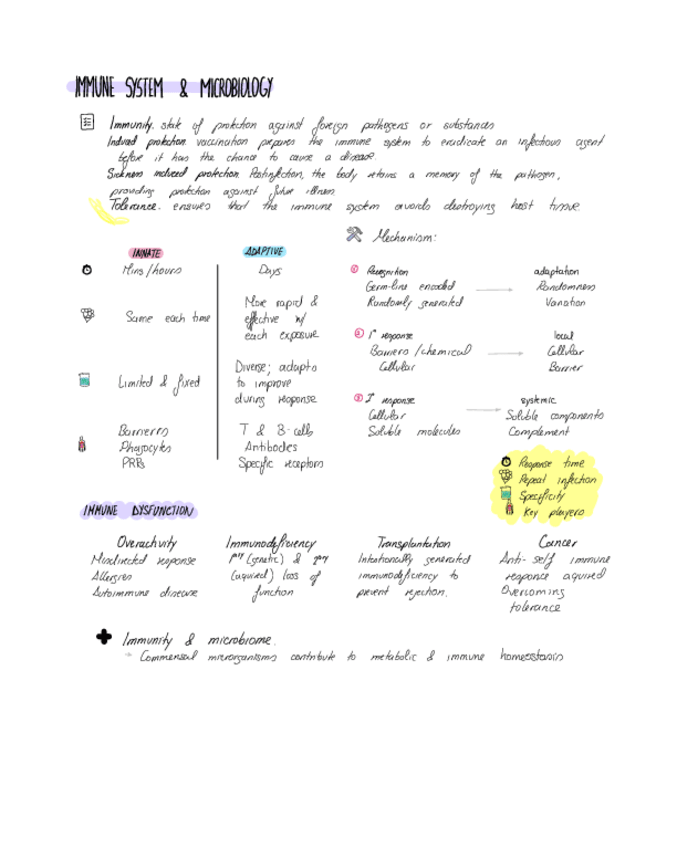 IMMUNE SYSTEM & MICROBIOLOGY
Immunity. state of protection against foreign pathogens or substances
Induced protection. vaccination prepares the immune system to eradicate an infectious agent
before it has the chance to cause a disease.
Sickness induced protection. Postinfection, the body retains a memory of the pathogen,
providing protection against future illness
Tolerance. ensures that the immune system avoids destroying host tissue.
Mechanism:
INNATE
ADAPTIVE
Mins/hours
Days
Same each time
More rapid &
effective w/
each exposure
Limited & fixed
Diverse; adapts
to improve
during response
Barriers
Phagocytes
PRRs
T & B-cells
Antibodies
Specific receptors
1 Recognition
adaptation
Germ-line encoded
Randomness
Randomly generated
Variation
2 1° response
local
Barriers/chemical
Cellular
Cellular
Barrier
3 2° response
systemic
Cellular
Soluble components
Soluble molecules
Complement
Response time
Repeat infection
Specificity
Key players
IMMUNE DYSFUNCTION
Overactivity
Misdirected response
Allergies
Autoimmune disease
Immunodeficiency
1ary (genetic) & 2ary
(aquired) loss of
function
Transplantation
Intentionally generated
immunodeficiency to
prevent rejection.
Cancer
Anti-self immune
response aquired
Overcoming
tolerance
Immunity & microbiome.
→ Commensal microrganisms contribute to metabolic & immune homeostasis